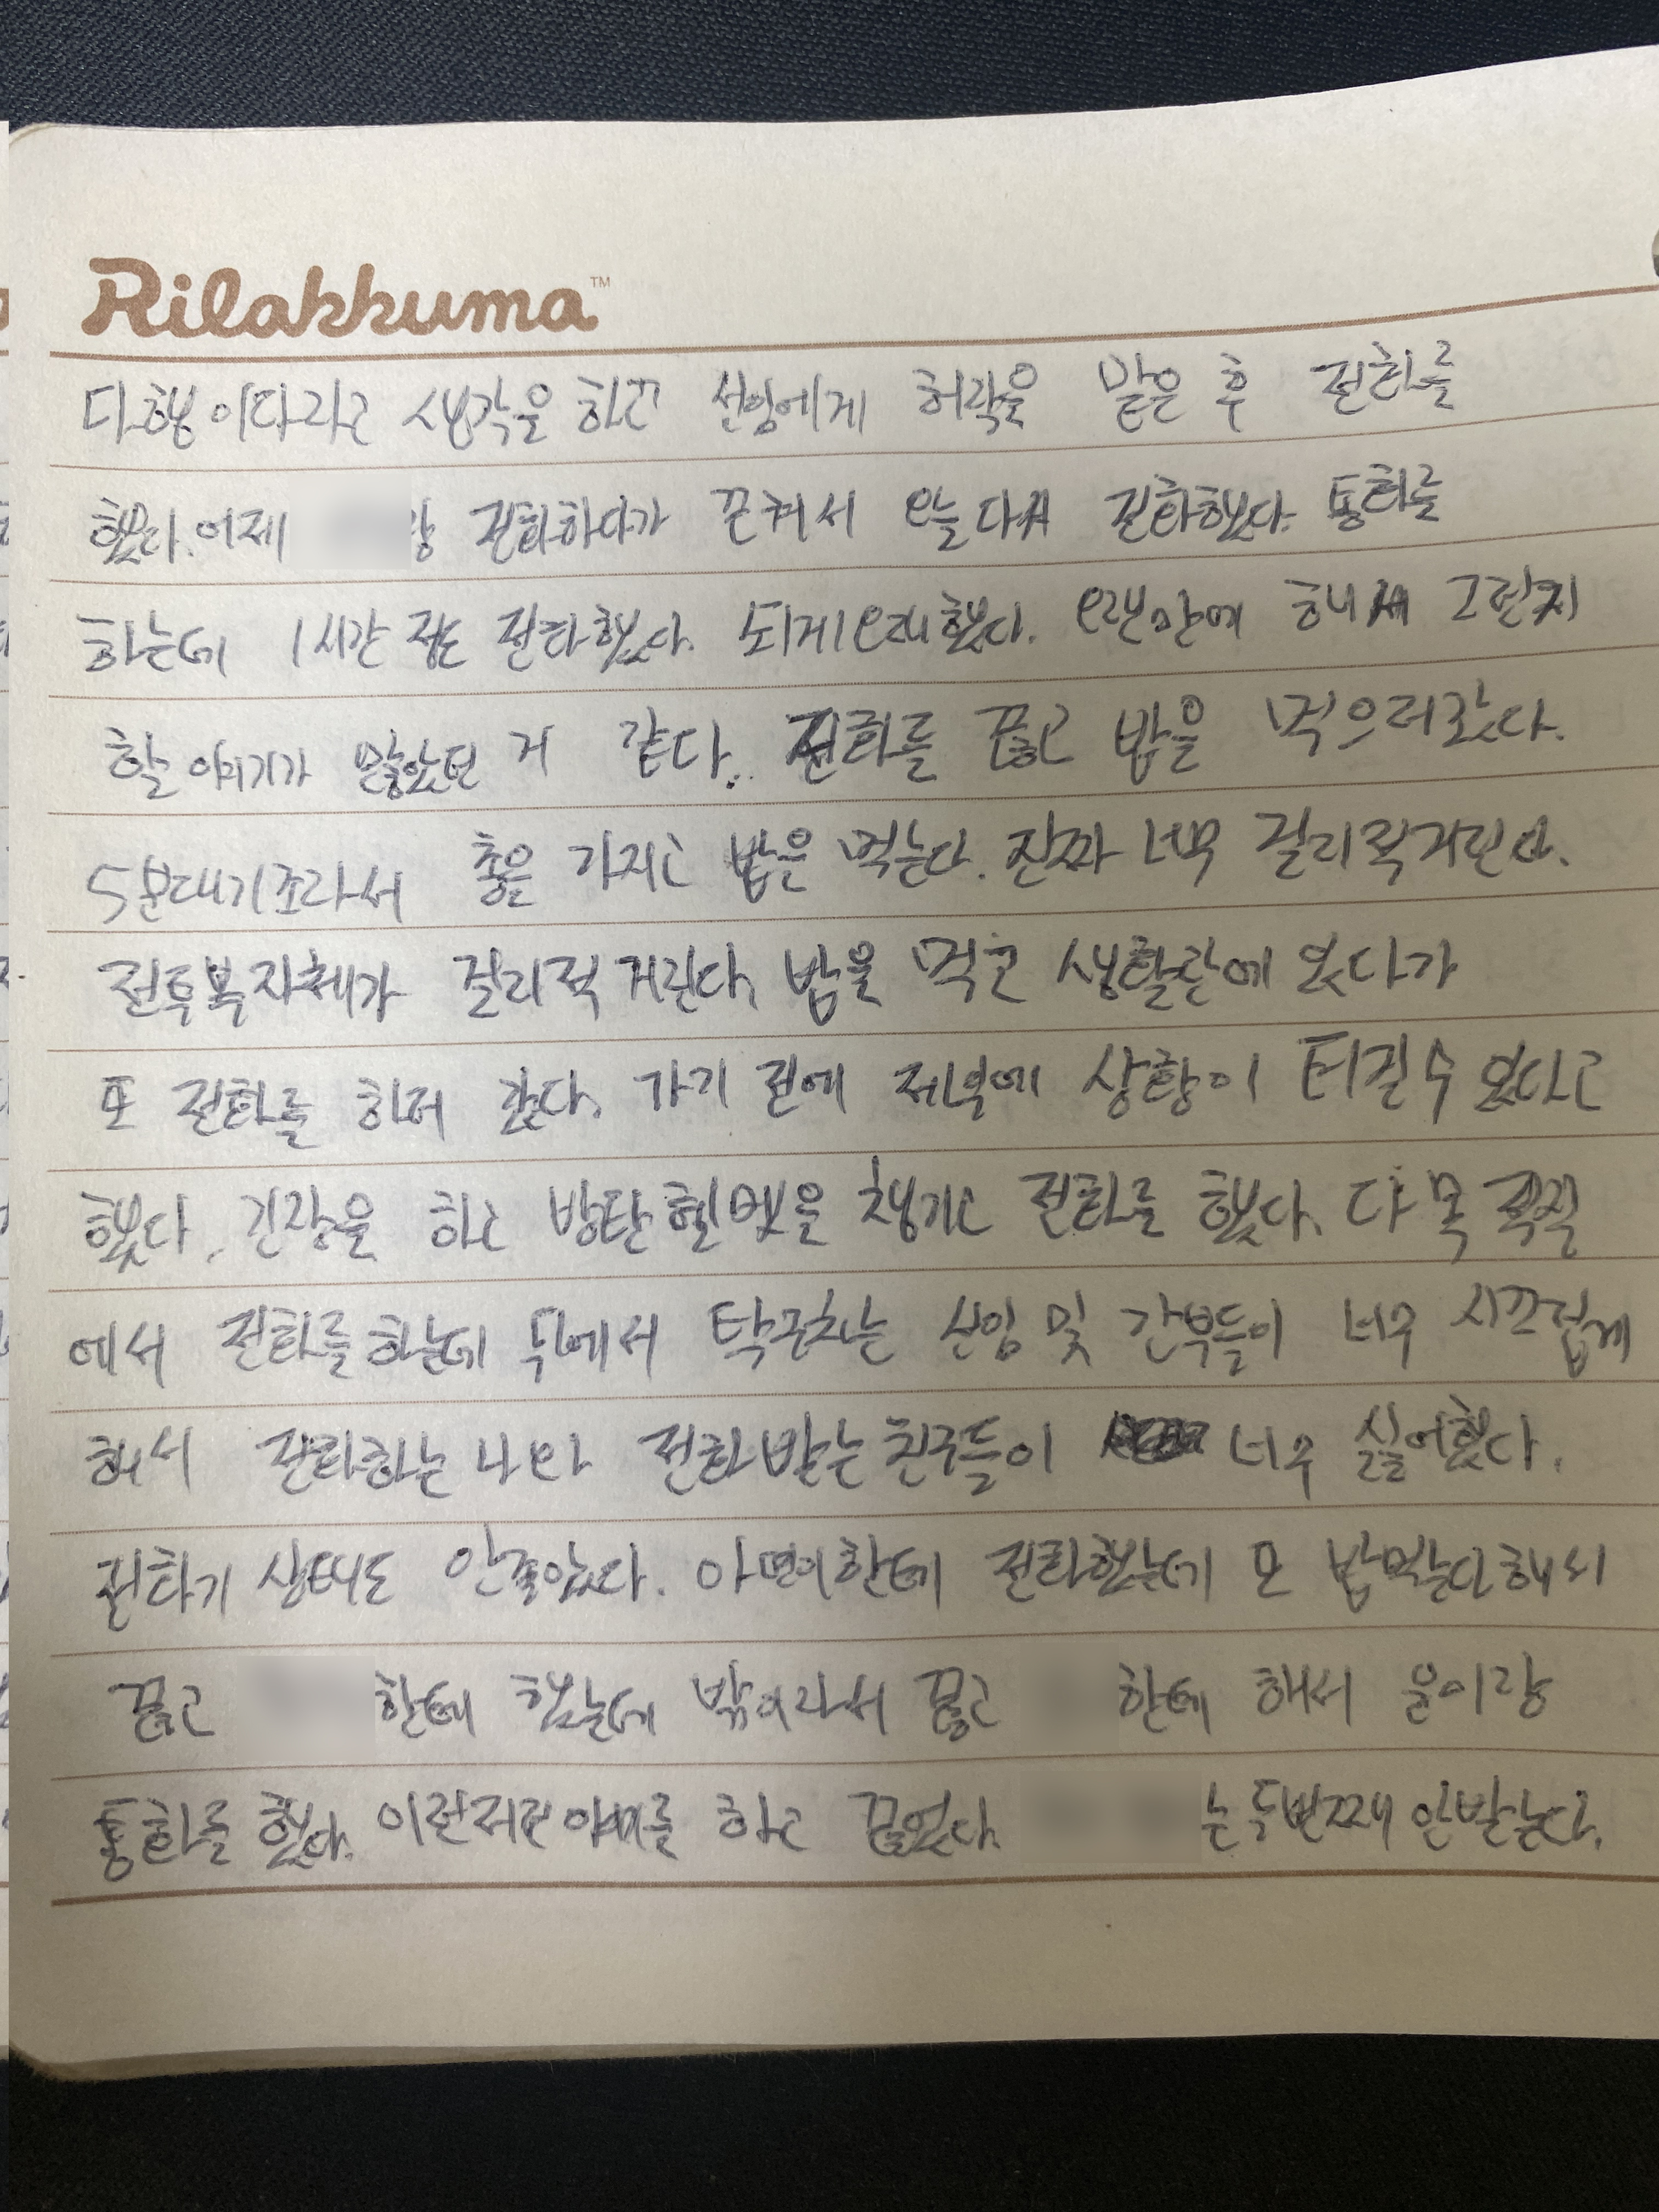 Rilakkuma™
다행이다라고 생각을 하고 선임에게 허락을 맡은 후 전화를
했다. 어제 랑 전화하다가 끈켜서 오늘 다시 전화했다. 통화를
하는데 1시간 정도 전화했다. 되게 오래 했다. 오랜만에 해서 그런지
할 얘기가 많았던 거 같다.. 전화를 끊고 밥을 먹으러 갔다.
5분대기조라서 총을 가지고 밥은 먹는다. 진짜 너무 걸리적거린다.
전투복 자체가 걸리적 거린다. 밥을 먹고 생활관에 있다가
또 전화를 하러 갔다. 가기 전에 저녁에 상황이 터질 수 있다고
했다. 긴장을 하고 방탄헬멧을 챙기고 전화를 했다. 다목
에서 전화를 하는데 뒤에서 탁구치는 선임 및 간부들이 너무 시끄럽게
해서 전화하는 나와 전화 받는 친구들이 너무 싫어했다.
전화기 상태도 안좋았다. 한테 전화했는데 또 밥먹는다 해서
끊고 한테 했는데 밖이라서 끊고 한테 해서 윤이랑
통화를 했다. 이런저런 얘기를 하고 끊었다. 는 두번째 안받는다.